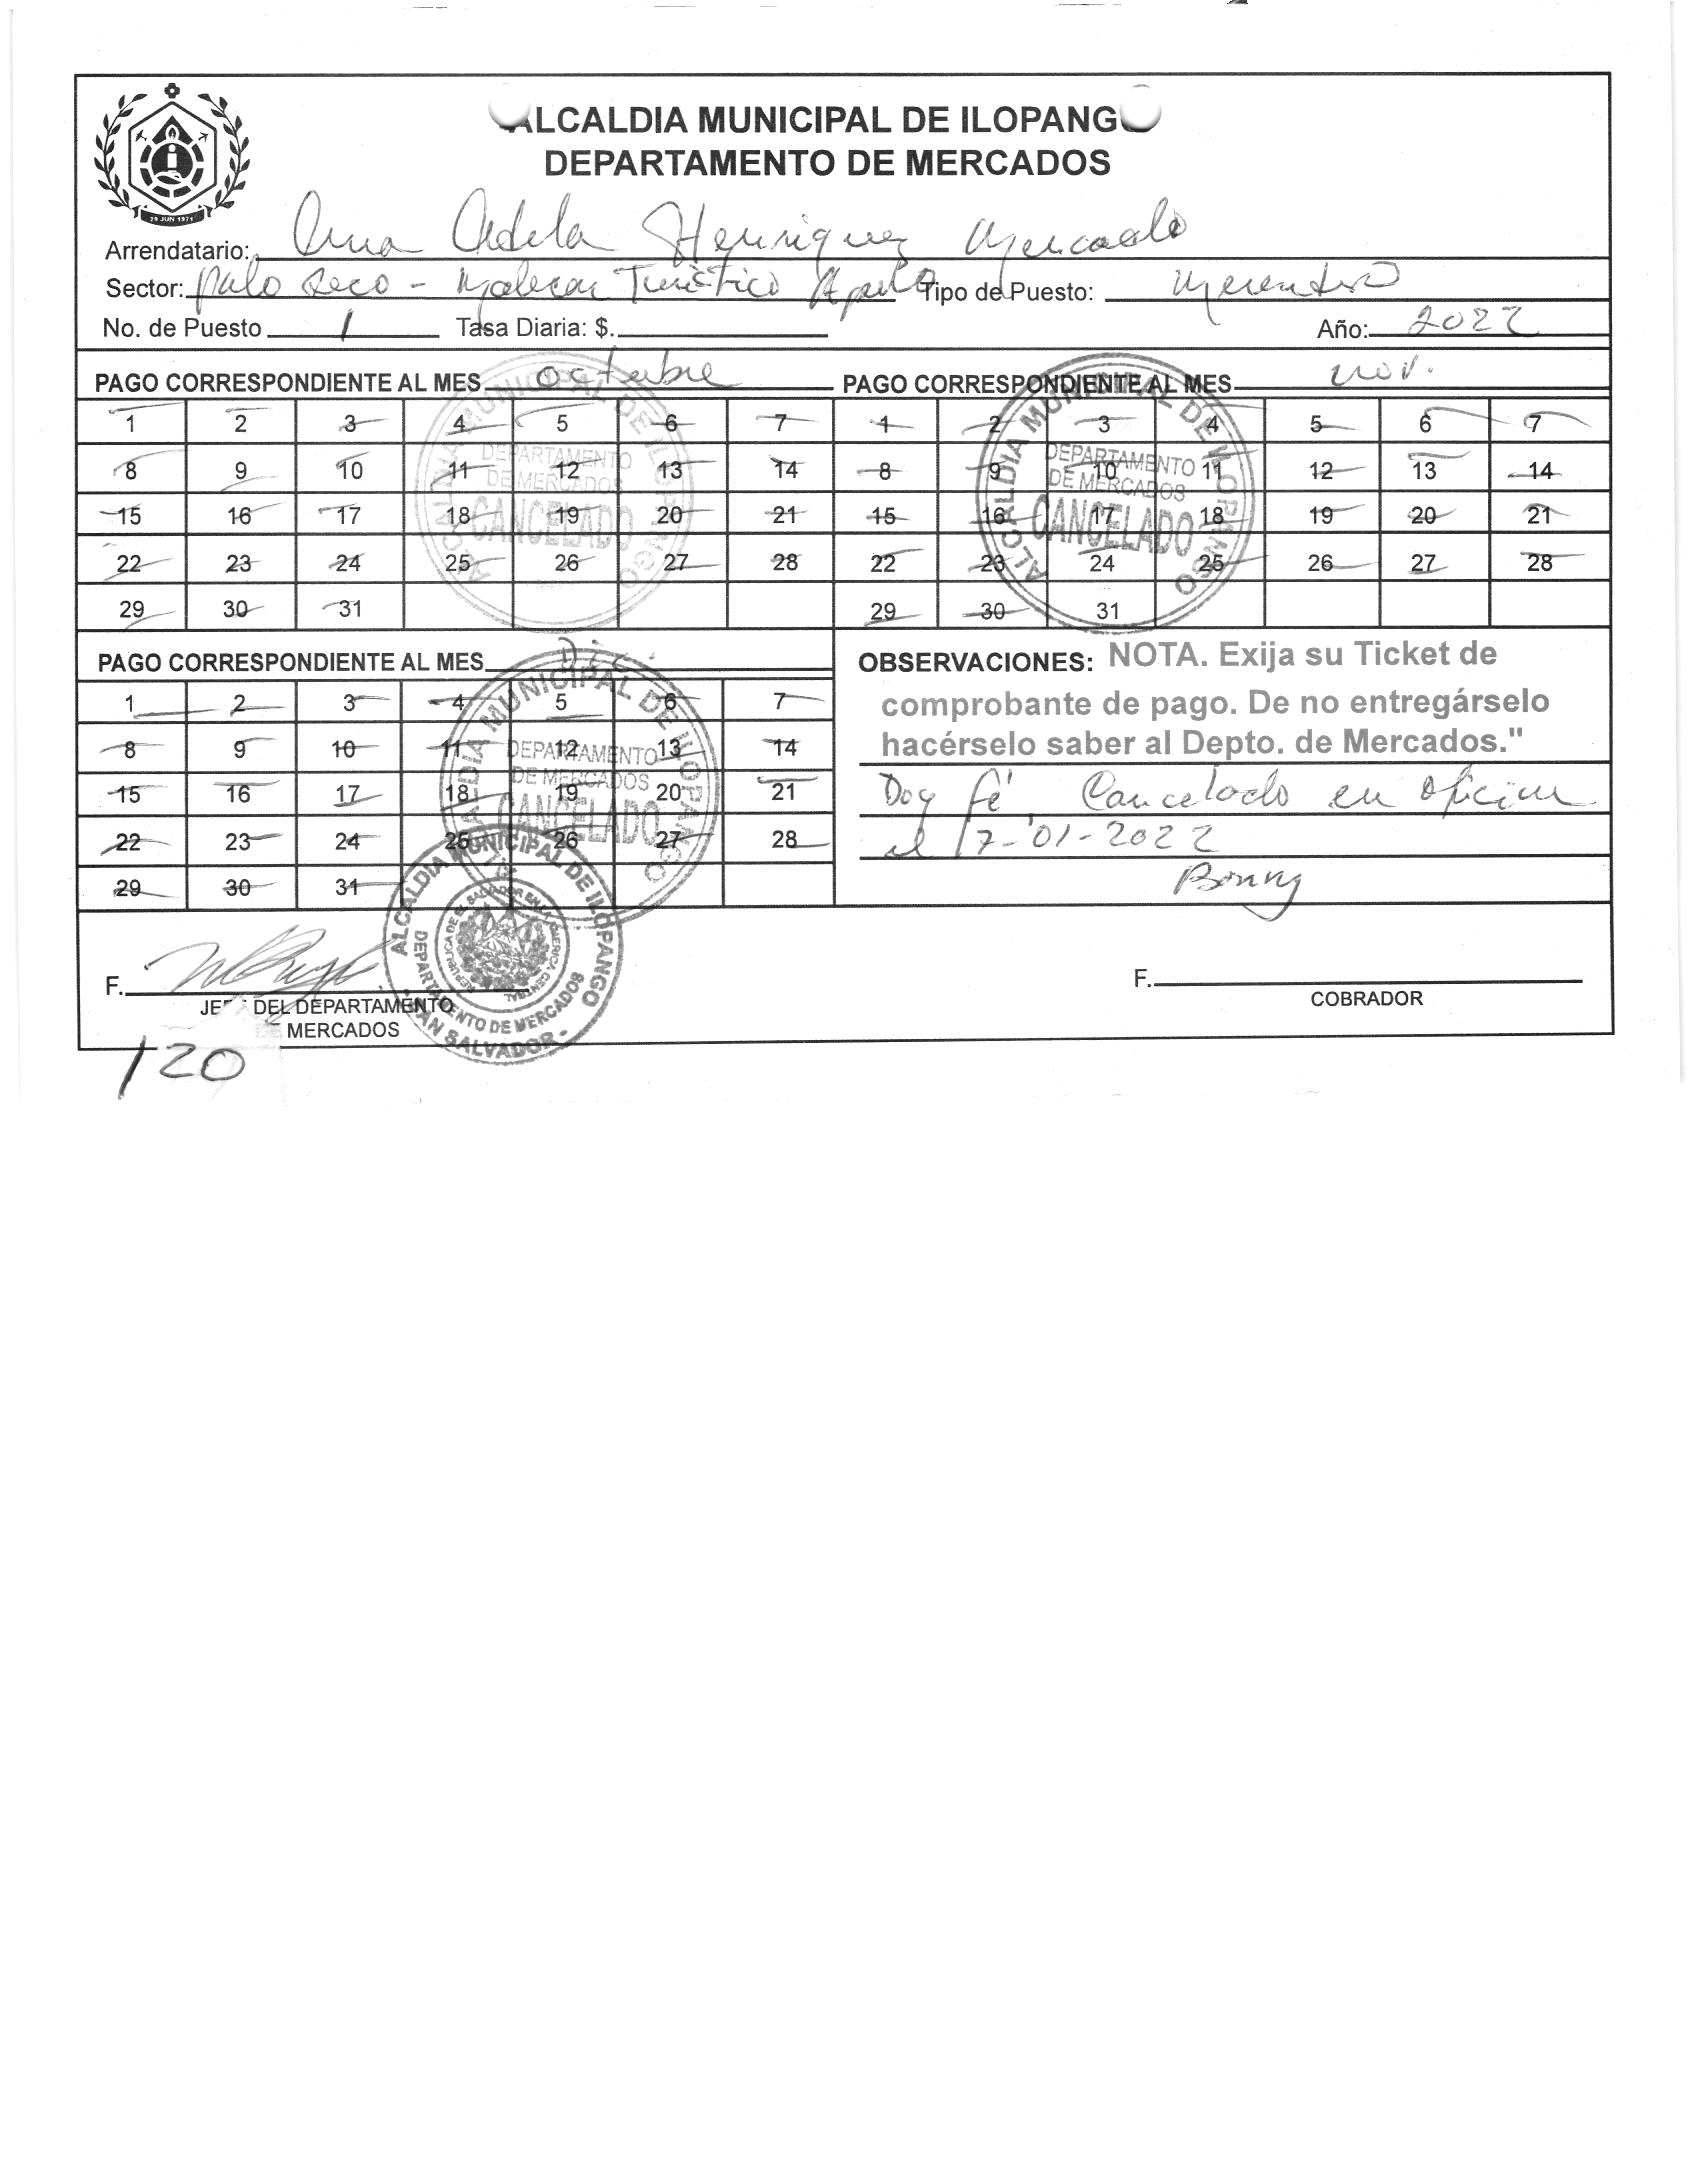 ALCALDIA MUNICIPAL DE ILOPANGO
DEPARTAMENTO DE MERCADOS
29 JUN 1971
Arrendatario: Ana Adela Henriquez Mercado
Sector: Palo Seco - Malecon Turistico Apulo Tipo de Puesto: Merendero
No. de Puesto 1 Tasa Diaria: $. Año: 2022
PAGO CORRESPONDIENTE AL MES octubre PAGO CORRESPONDIENTE AL MES nov.
1 2 3 4 5 6 7 1 2 3 4 5 6 7
8 9 10 11 12 13 14 8 9 10 11 12 13 14
15 16 17 18 19 20 21 15 16 17 18 19 20 21
22 23 24 25 26 27 28 22 23 24 25 26 27 28
29 30 31 29 30 31
ALCALDIA MUNICIPAL DE ILOPANGO
DEPARTAMENTO
DE MERCADOS
CANCELADO
ALCALDIA MUNICIPAL DE ILOPANGO
DEPARTAMENTO
DE MERCADOS
CANCELADO
PAGO CORRESPONDIENTE AL MES Dic. OBSERVACIONES: NOTA. Exija su Ticket de
comprobante de pago. De no entregárselo
hacérselo saber al Depto. de Mercados."
1 2 3 4 5 6 7
8 9 10 11 12 13 14
15 16 17 18 19 20 21
22 23 24 25 26 27 28
29 30 31
ALCALDIA MUNICIPAL DE ILOPANGO
DEPARTAMENTO
DE MERCADOS
CANCELADO
Doy fé Cancelado en oficina
el 17-01-2022
Bonny
F. F.
JEFE DEL DEPARTAMENTO COBRADOR
DE MERCADOS
ALCALDIA MUNICIPAL DE ILOPANGO
DEPARTAMENTO DE MERCADOS
SAN SALVADOR
REPUBLICA DE EL SALVADOR EN LA AMERICA CENTRAL
120